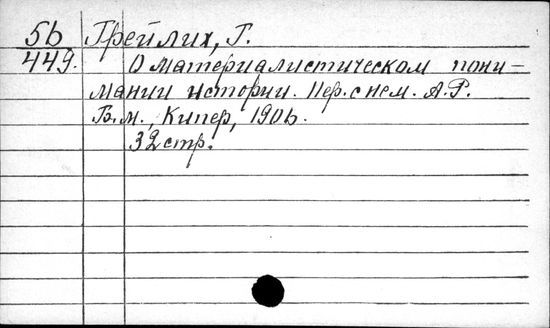 5б Грейлих, Г.
449. О материалистическом пони-
мании истории. Пер. с нем. А.Р.
Б.м., Кипер, 1906.
32 стр.